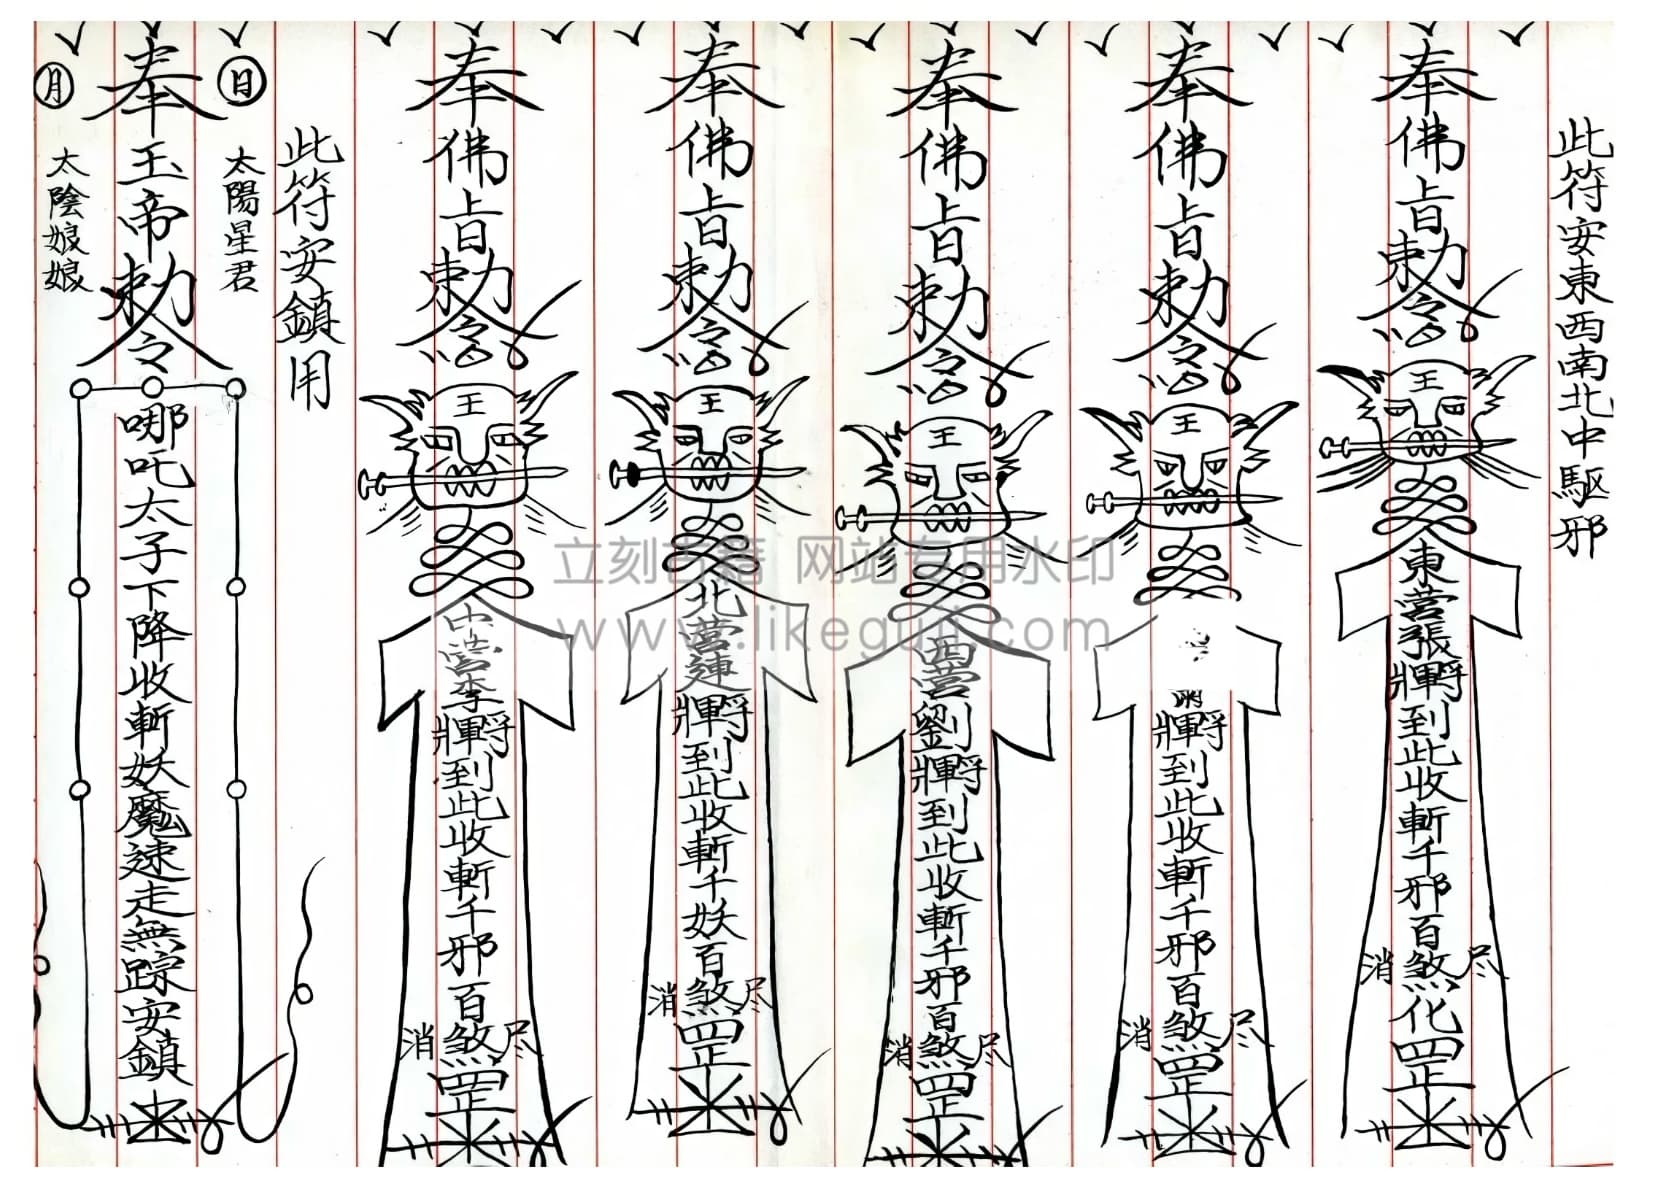 此符安東西南北中駆邪
奉佛旨勅令
王
東營張將軍到此收斬千邪百煞化罡
消 尽
奉佛旨勅令
王
將軍到此收斬千邪百煞罡
消 尽
奉佛旨勅令
王
西營劉將軍到此收斬千邪百煞罡
消 尽
奉佛旨勅令
王
北營連將軍到此收斬千妖百煞罡
消 尽
奉佛旨勅令
王
中營李將軍到此收斬千邪百煞罡
消 尽
此符安鎮用
日
太陽星君
奉玉帝勅令
哪吒太子下降收斬妖魔速走無踪安鎮
月
太陰娘娘
立刻古籍 网站专用水印
www.likeguji.com